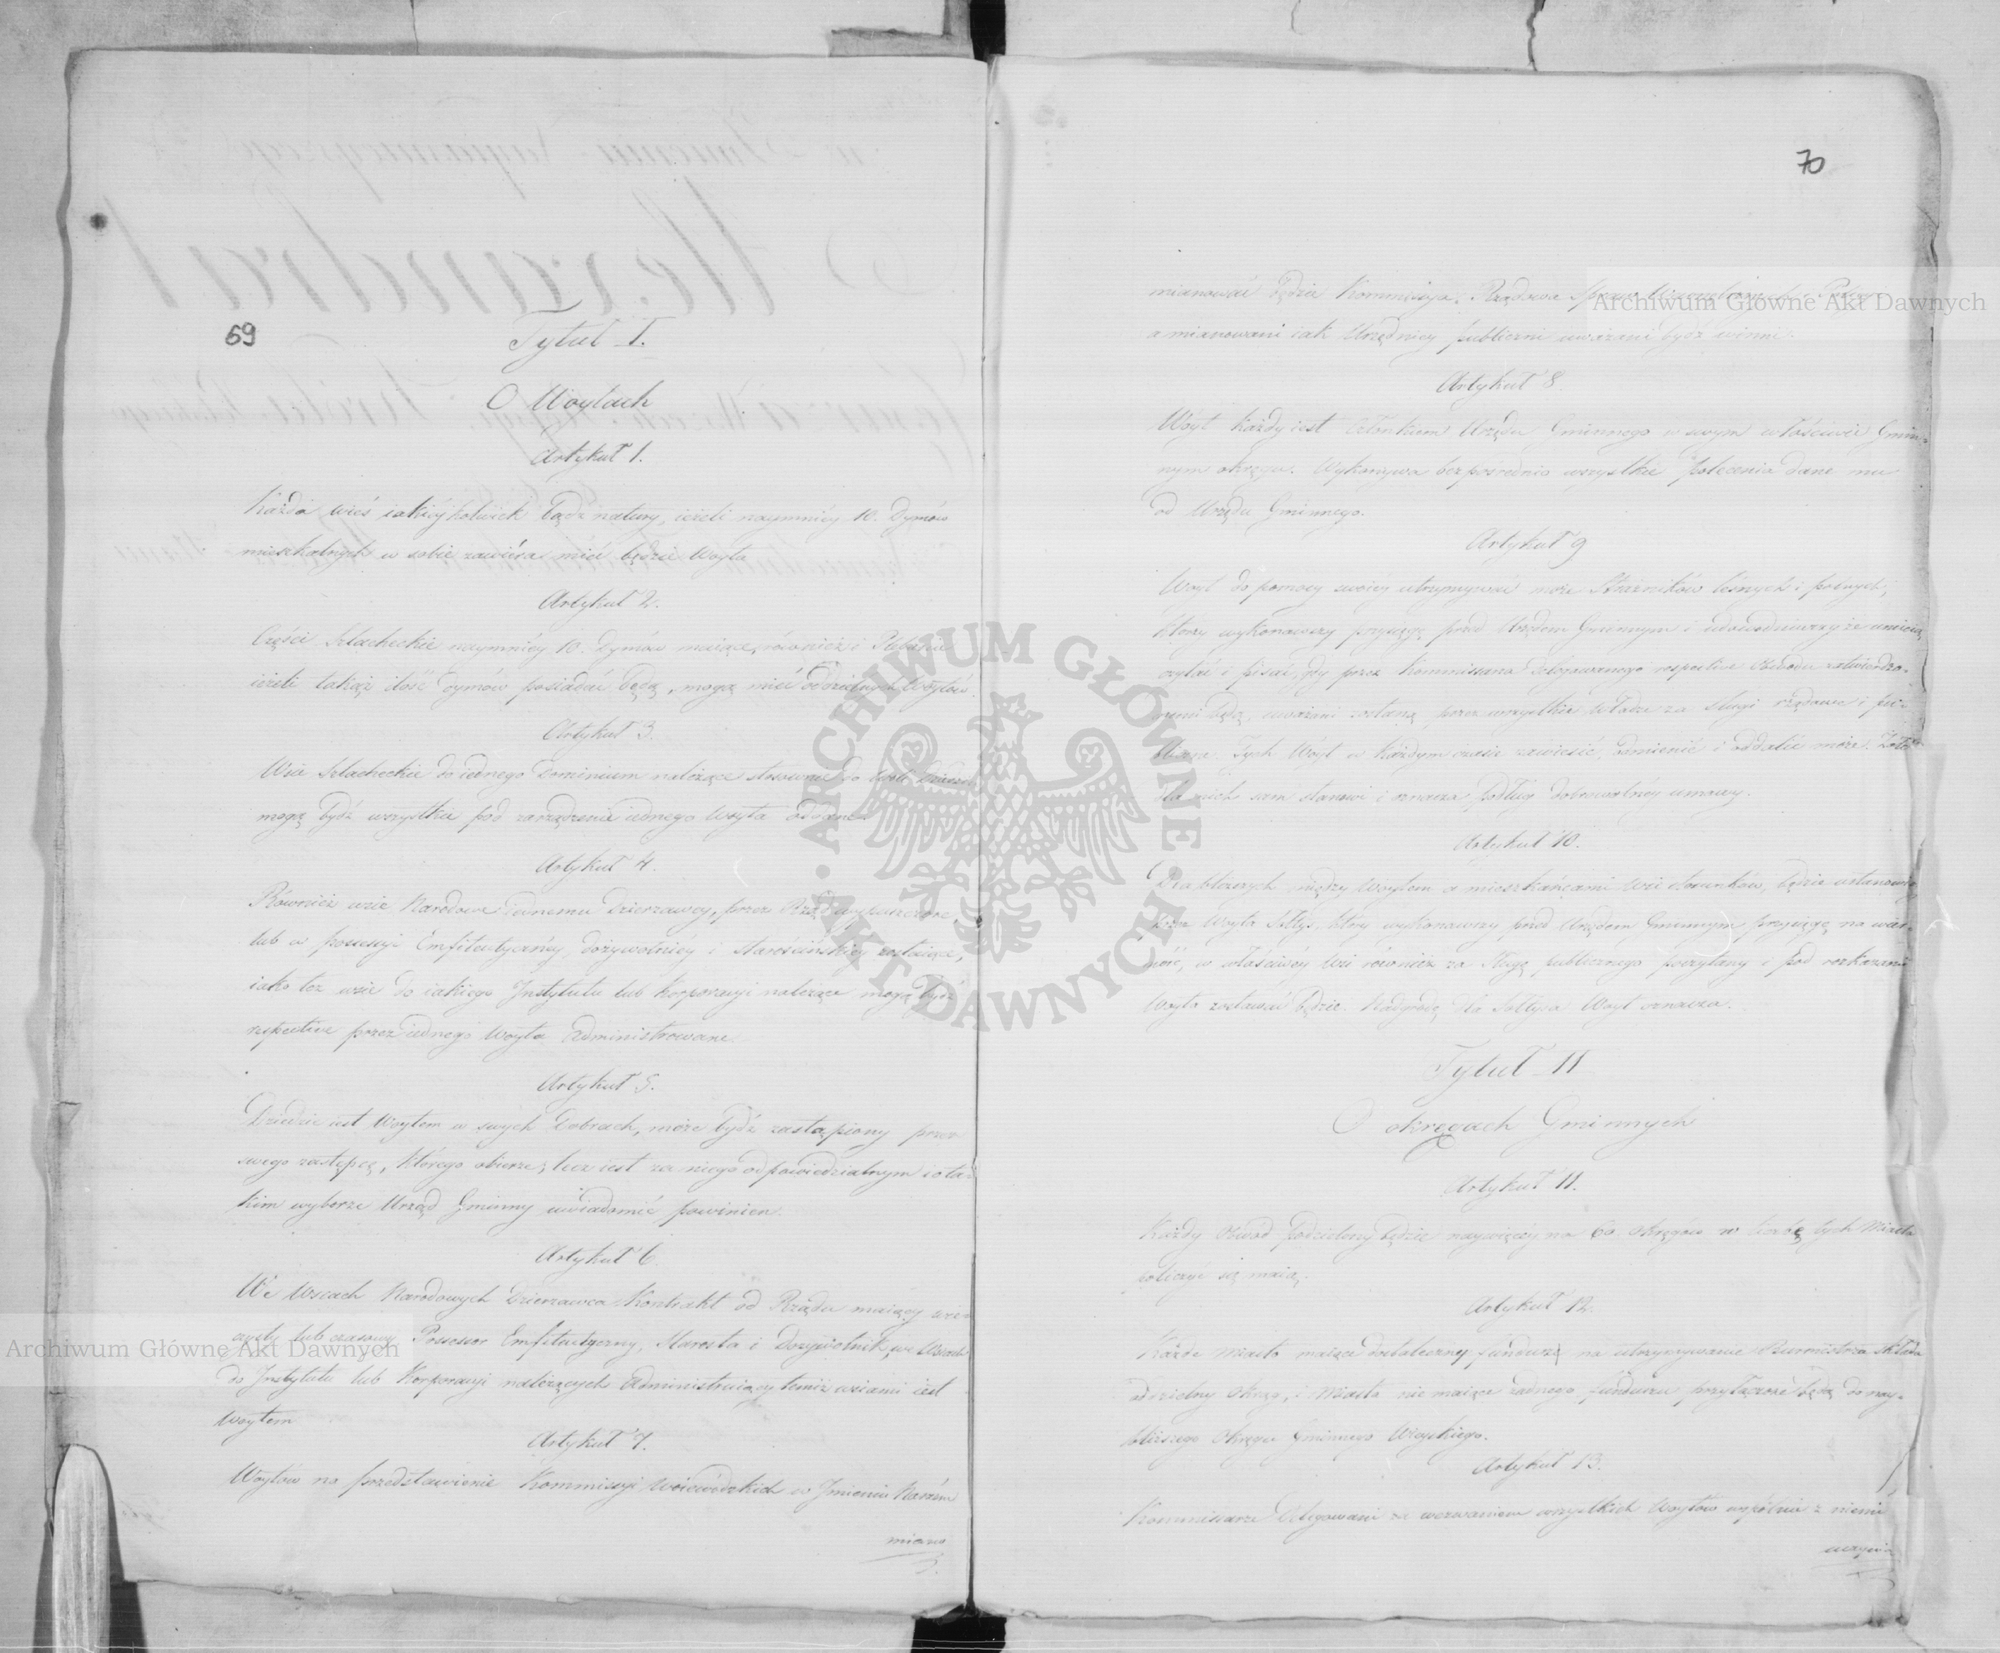 69
Tytuł I.
O Woytach
Artykuł 1.
Każda wieś iakieykolwiek bądź natury, ieżeli naymniéy 10. Dymów
mieszkalnych w sobie zawiéra mieć będzie Woyta
Artykuł 2.
Części Szlacheckie naymniéy 10. Dymów maiące, również i Plebanie
ieżeli takąż ilość dymów posiadać będą, mogą mieć oddzielnych Woytów.
Artykuł 3.
Wsie Szlacheckie do iednego Dominium należące stosownie do woli Dziedzica
mogą bydź wszystkie pod zarządzenie iednego Woyta oddane.
Artykuł 4.
Również wsie Narodowe iednemu Dzierzawcy, przez Rząd wypuszczone,
lub w possessyi Emfiteutycznéy, dożywotniéy i Starościńskiéy zostaiące,
iako też wsie do iakiego Instytutu lub korporacyi należące mogą bydź
respective przez iednego Woyta administrowane.
Artykuł 5.
Dziedzic iest Woytem w swych Dobrach, może bydź zastąpiony przez
swego zastępcę, którego obierze; lecz iest za niego odpowiedzialnym i o ta-
kim wyborze Urząd Gminny uwiadomić powinien.
Artykuł 6.
We Wsiach Narodowych Dzierzawca Kontrakt od Rządu maiący wie-
czysty lub czasowy Possessor Emfiteutyczny, Starosta i Dożywotnik, we Wsiach
do Instytutu lub Korporacyi należących administruiący temiż wsiami iest
Woytem
Artykuł 7.
Woytów na przedstawienie Kommissyi Woiewódzkich w Imieniu Naszém
miano
70
mianować będzie Kommissya Rządowa Spraw Wewnętrznych i Policyi
a mianowani iak Urzędnicy publiczni uważani bydź winni.
Artykuł 8.
Woyt każdy iest Członkiem Urzędu Gminnego w swym właściwie Gmin-
nym okręgu. Wykonywa bezpośrednio wszystkie polecenia dane mu
od Urzędu Gminnego.
Artykuł 9
Woyt do pomocy swoiey utrzymywać może Strażników leśnych i polnych,
którzy wykonawszy przysięgę przed Urzędem Gminnym i udowodniwszy że umieią
czytać i pisać, gdy przez Kommissarza Delegowanego respective obwodu zatwierdze-
niemi będą, uważani zostaną przez wszystkie Władze za Sługi rządowe i pu-
bliczne. Tych Woyt w każdym czasie zawiesić, odmienić i oddalić może. Żołd
dla nich sam stanowi i oznacza podług dobrowolney umowy.
Artykuł 10.
Dla bliższych między Woytem a mieszkańcami wsi stosunków, będzie ustanowiony
przez Woyta Sołtys, który wykonawszy przed Urzędem Gminnym przysięgę na wier-
ność, w właściwéy wsi również za Sługę publicznego poczytany i pod rozkazami
Woyta zostawać będzie. Nadgrodę dla Sołtysa Woyt oznacza.
Tytuł II
O okręgach Gminnych
Artykuł 11.
Każdy obwód podzielony będzie naywięcéy na 60 okręgów w liczbę tych Miasta
policzyć się maią.
Artykuł 12.
Każde Miasto maiące dostateczny fundusz na utrzymywanie Burmistrza składa
oddzielny okrąg, i Miasta nie maiące żadnego funduszu przyłączone będą do nay-
bliższego okręgu Gminnego Wieyskiego.
Artykuł 13.
Kommissarze Delegowani za wezwaniem wszystkich Woytów wspólnie z niemi
uczynią
Archiwum Główne Akt Dawnych
Archiwum Główne Akt Dawnych
ARCHIWUM GŁÓWNE AKT DAWNYCH